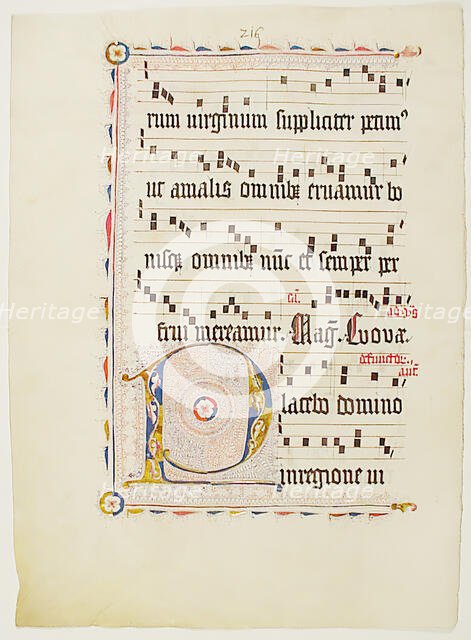 216
rum uirginum suppliciter petim⁹
ut a malis omnibꝫ eruamur bo
nisqꝫ omnibꝫ nūc et semper per
frui mereamur. Mag̅. Euouae.
defunctor.
ant̅.
Placebo domino
in regione ui
Heritage
Heritage
Heritage
Heritage
Heritage
Heritage